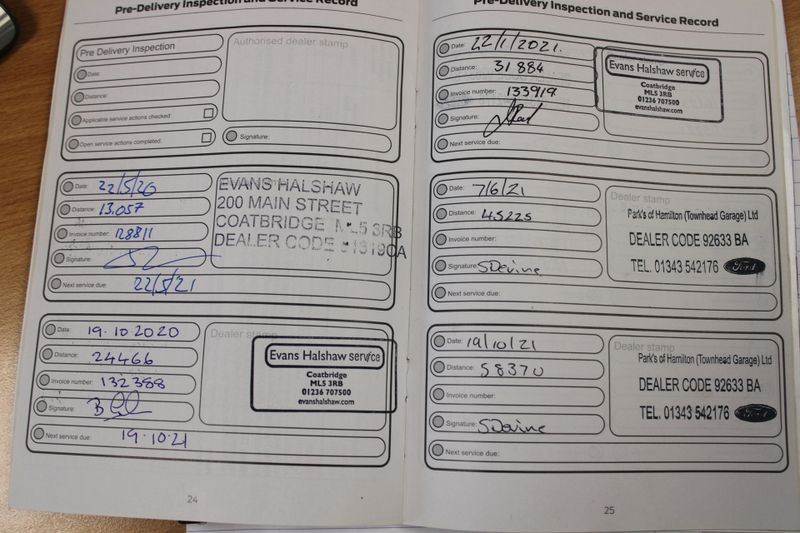 Pre-Delivery Inspection and Service Record
Pre Delivery Inspection
Date:
Distance:
Applicable service actions checked
Open service actions completed.
Authorised dealer stamp
Signature:
Date: 22/5/20
Distance: 13.057
Invoice number: 128811
Signature:
Next service due: 22/5/21
EVANS HALSHAW
200 MAIN STREET
COATBRIDGE ML5 3RB
DEALER CODE
Date: 19.10 2020
Distance: 24466
Invoice number: 132388
Signature:
Next service due: 19.10.21
Dealer stamp
Evans Halshaw service
Coatbridge
ML5 3RB
01236 707500
evanshalshaw.com
24
Pre-Delivery Inspection and Service Record
Date: 22/1/2021.
Distance: 31 884
Invoice number: 133919
Signature:
Next service due:
Evans Halshaw service
Coatbridge
ML5 3RB
01236 707500
evanshalshaw.com
Date: 7/6/21
Distance: 45225
Invoice number:
Signature: SDevine
Next service due:
Dealer stamp
Park's of Hamilton (Townhead Garage) Ltd
DEALER CODE 92633 BA
TEL. 01343 542176 Ford
Date: 19/10/21
Distance: 58370
Invoice number:
Signature: SDevine
Next service due:
Dealer stamp
Park's of Hamilton (Townhead Garage) Ltd
DEALER CODE 92633 BA
TEL. 01343 542176 Ford
25